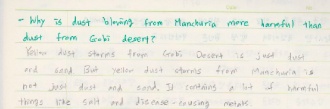 - Why is dust blowing from Manchuria more harmful than
dust from Gobi desert?
Yellow dust storms from Gobi Desert is just dust
and sand. But yellow dust storms from Manchuria is
not just dust and sand. It contains a lot of harmful
things like salt and disease-causing metals.